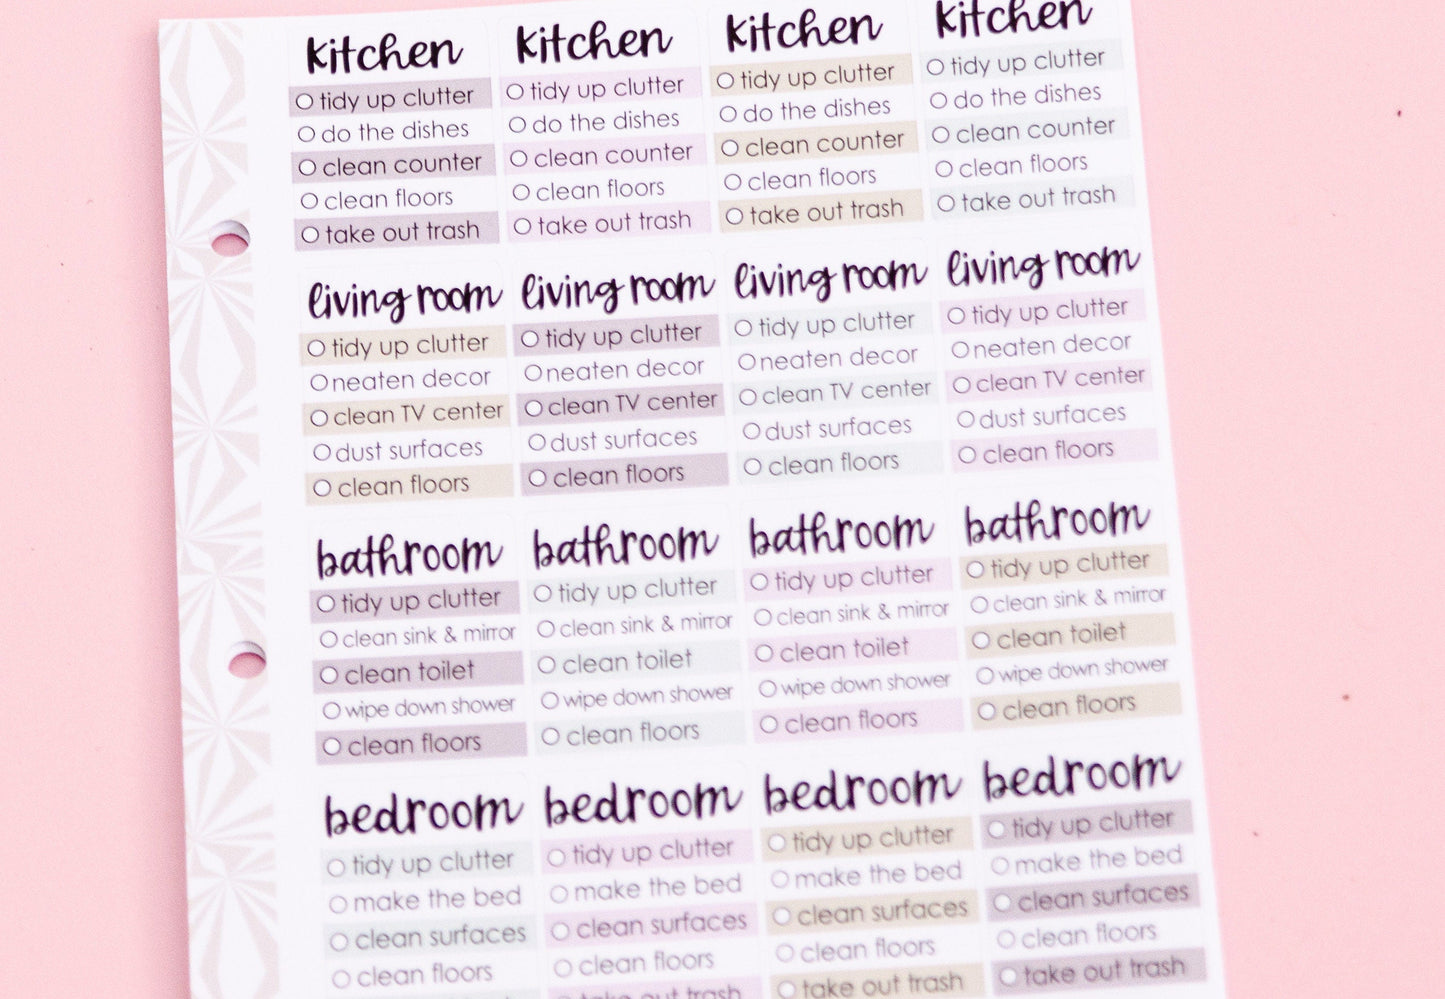 kitchen
tidy up clutter
do the dishes
clean counter
clean floors
take out trash
kitchen
tidy up clutter
do the dishes
clean counter
clean floors
take out trash
kitchen
tidy up clutter
do the dishes
clean counter
clean floors
take out trash
kitchen
tidy up clutter
do the dishes
clean counter
clean floors
take out trash
living room
tidy up clutter
neaten decor
clean TV center
dust surfaces
clean floors
living room
tidy up clutter
neaten decor
clean TV center
dust surfaces
clean floors
living room
tidy up clutter
neaten decor
clean TV center
dust surfaces
clean floors
living room
tidy up clutter
neaten decor
clean TV center
dust surfaces
clean floors
bathroom
tidy up clutter
clean sink & mirror
clean toilet
wipe down shower
clean floors
bathroom
tidy up clutter
clean sink & mirror
clean toilet
wipe down shower
clean floors
bathroom
tidy up clutter
clean sink & mirror
clean toilet
wipe down shower
clean floors
bathroom
tidy up clutter
clean sink & mirror
clean toilet
wipe down shower
clean floors
bedroom
tidy up clutter
make the bed
clean surfaces
clean floors
bedroom
tidy up clutter
make the bed
clean surfaces
clean floors
take out trash
bedroom
tidy up clutter
make the bed
clean surfaces
clean floors
take out trash
bedroom
tidy up clutter
make the bed
clean surfaces
clean floors
take out trash